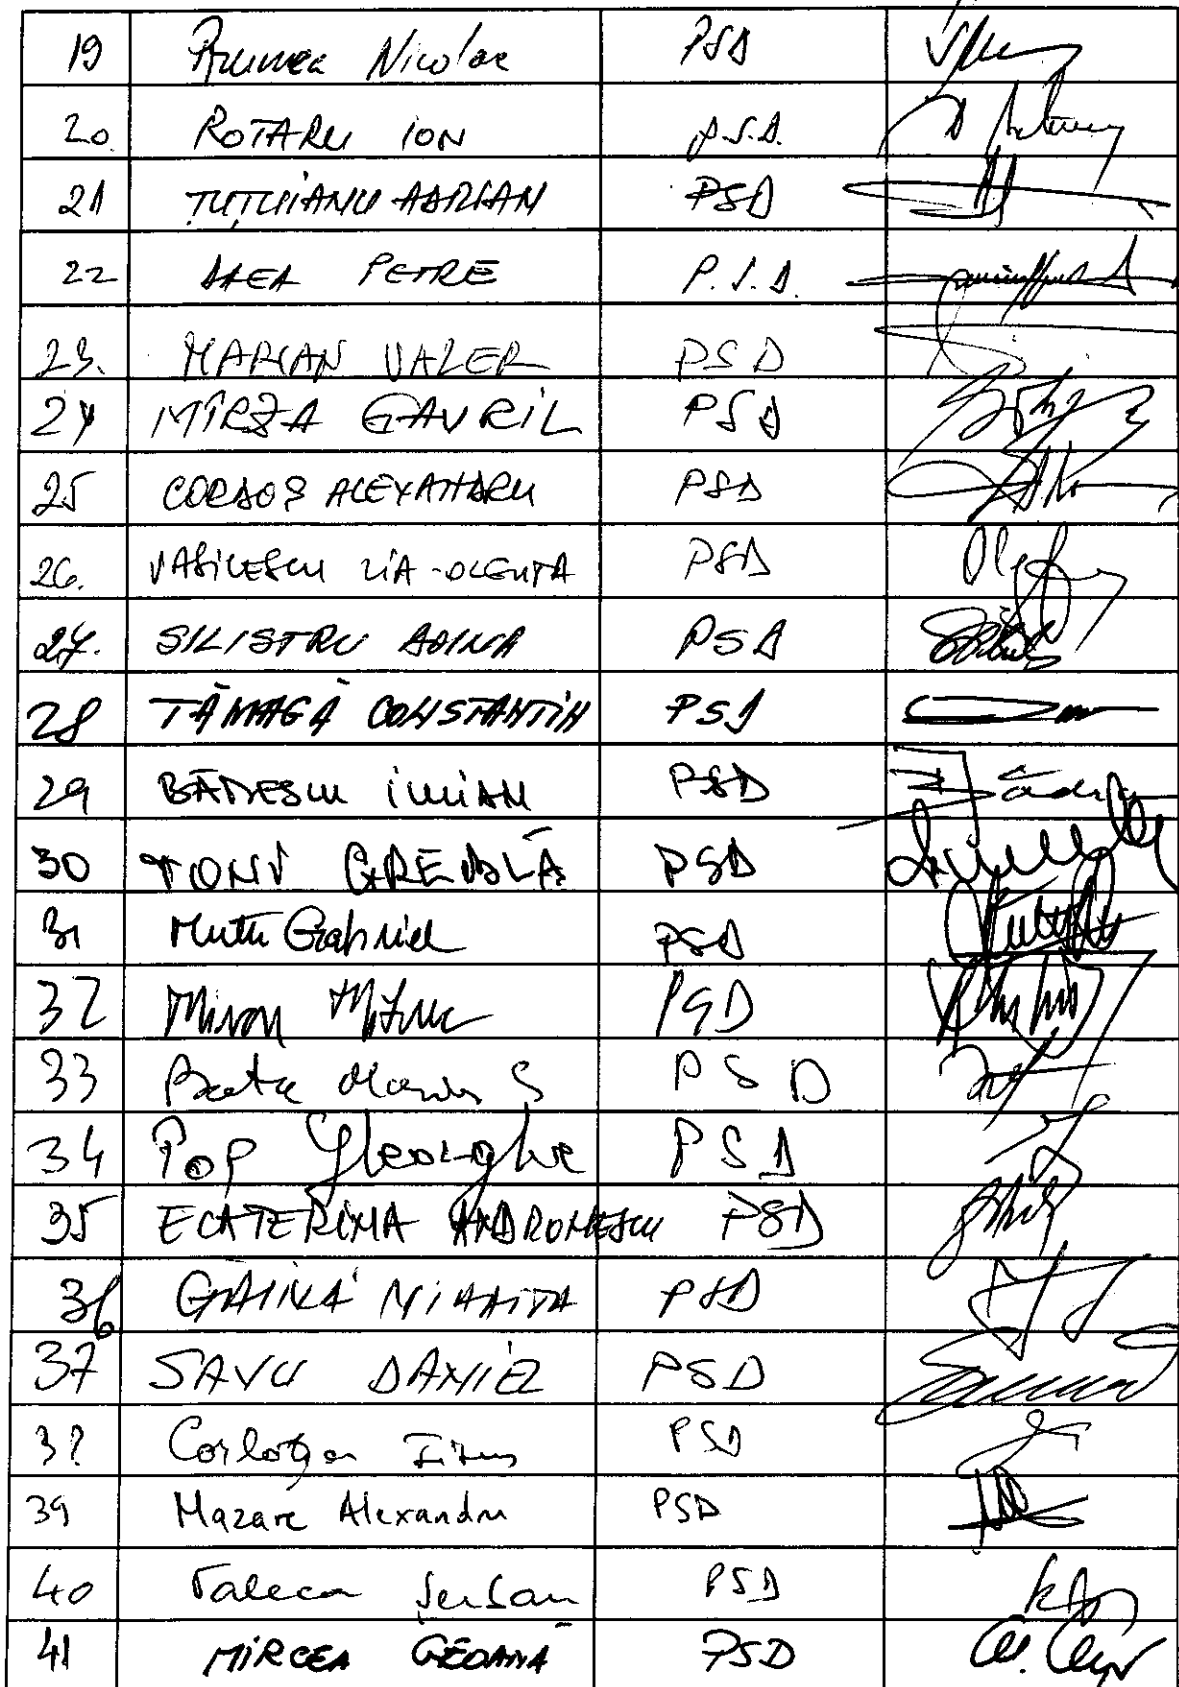 19 Prunea Nicolae PSD
20. ROTARU ION P.S.D.
21 ȚUȚUIANU ADRIAN PSD
22 DAEA PETRE P.S.D.
23. MARIAN VALER PSD
24 MÎRZA GAVRIL PSD
25 CORDOȘ ALEXANDRU PSD
26. VASILESCU LIA-OLGUȚA PSD
27. SILISTRU DOINA PSD
28 TĂMAGĂ CONSTANTIN PSD
29 BĂDESCU IULIAN PSD
30 TONI GREBLĂ PSD
31 Mutu Gabriel PSD
32 Miron Mitrea PSD
33 PSD
34 Pop Gheorghe PSD
35 ECATERINA ANDRONESCU PSD
36 GĂINĂ MIHĂIȚĂ PSD
37 SAVU DANIEL PSD
38 Corlățean Titus PSD
39 Mazare Alexandru PSD
40 Valeca Șerban PSD
41 MIRCEA GEOANĂ PSD